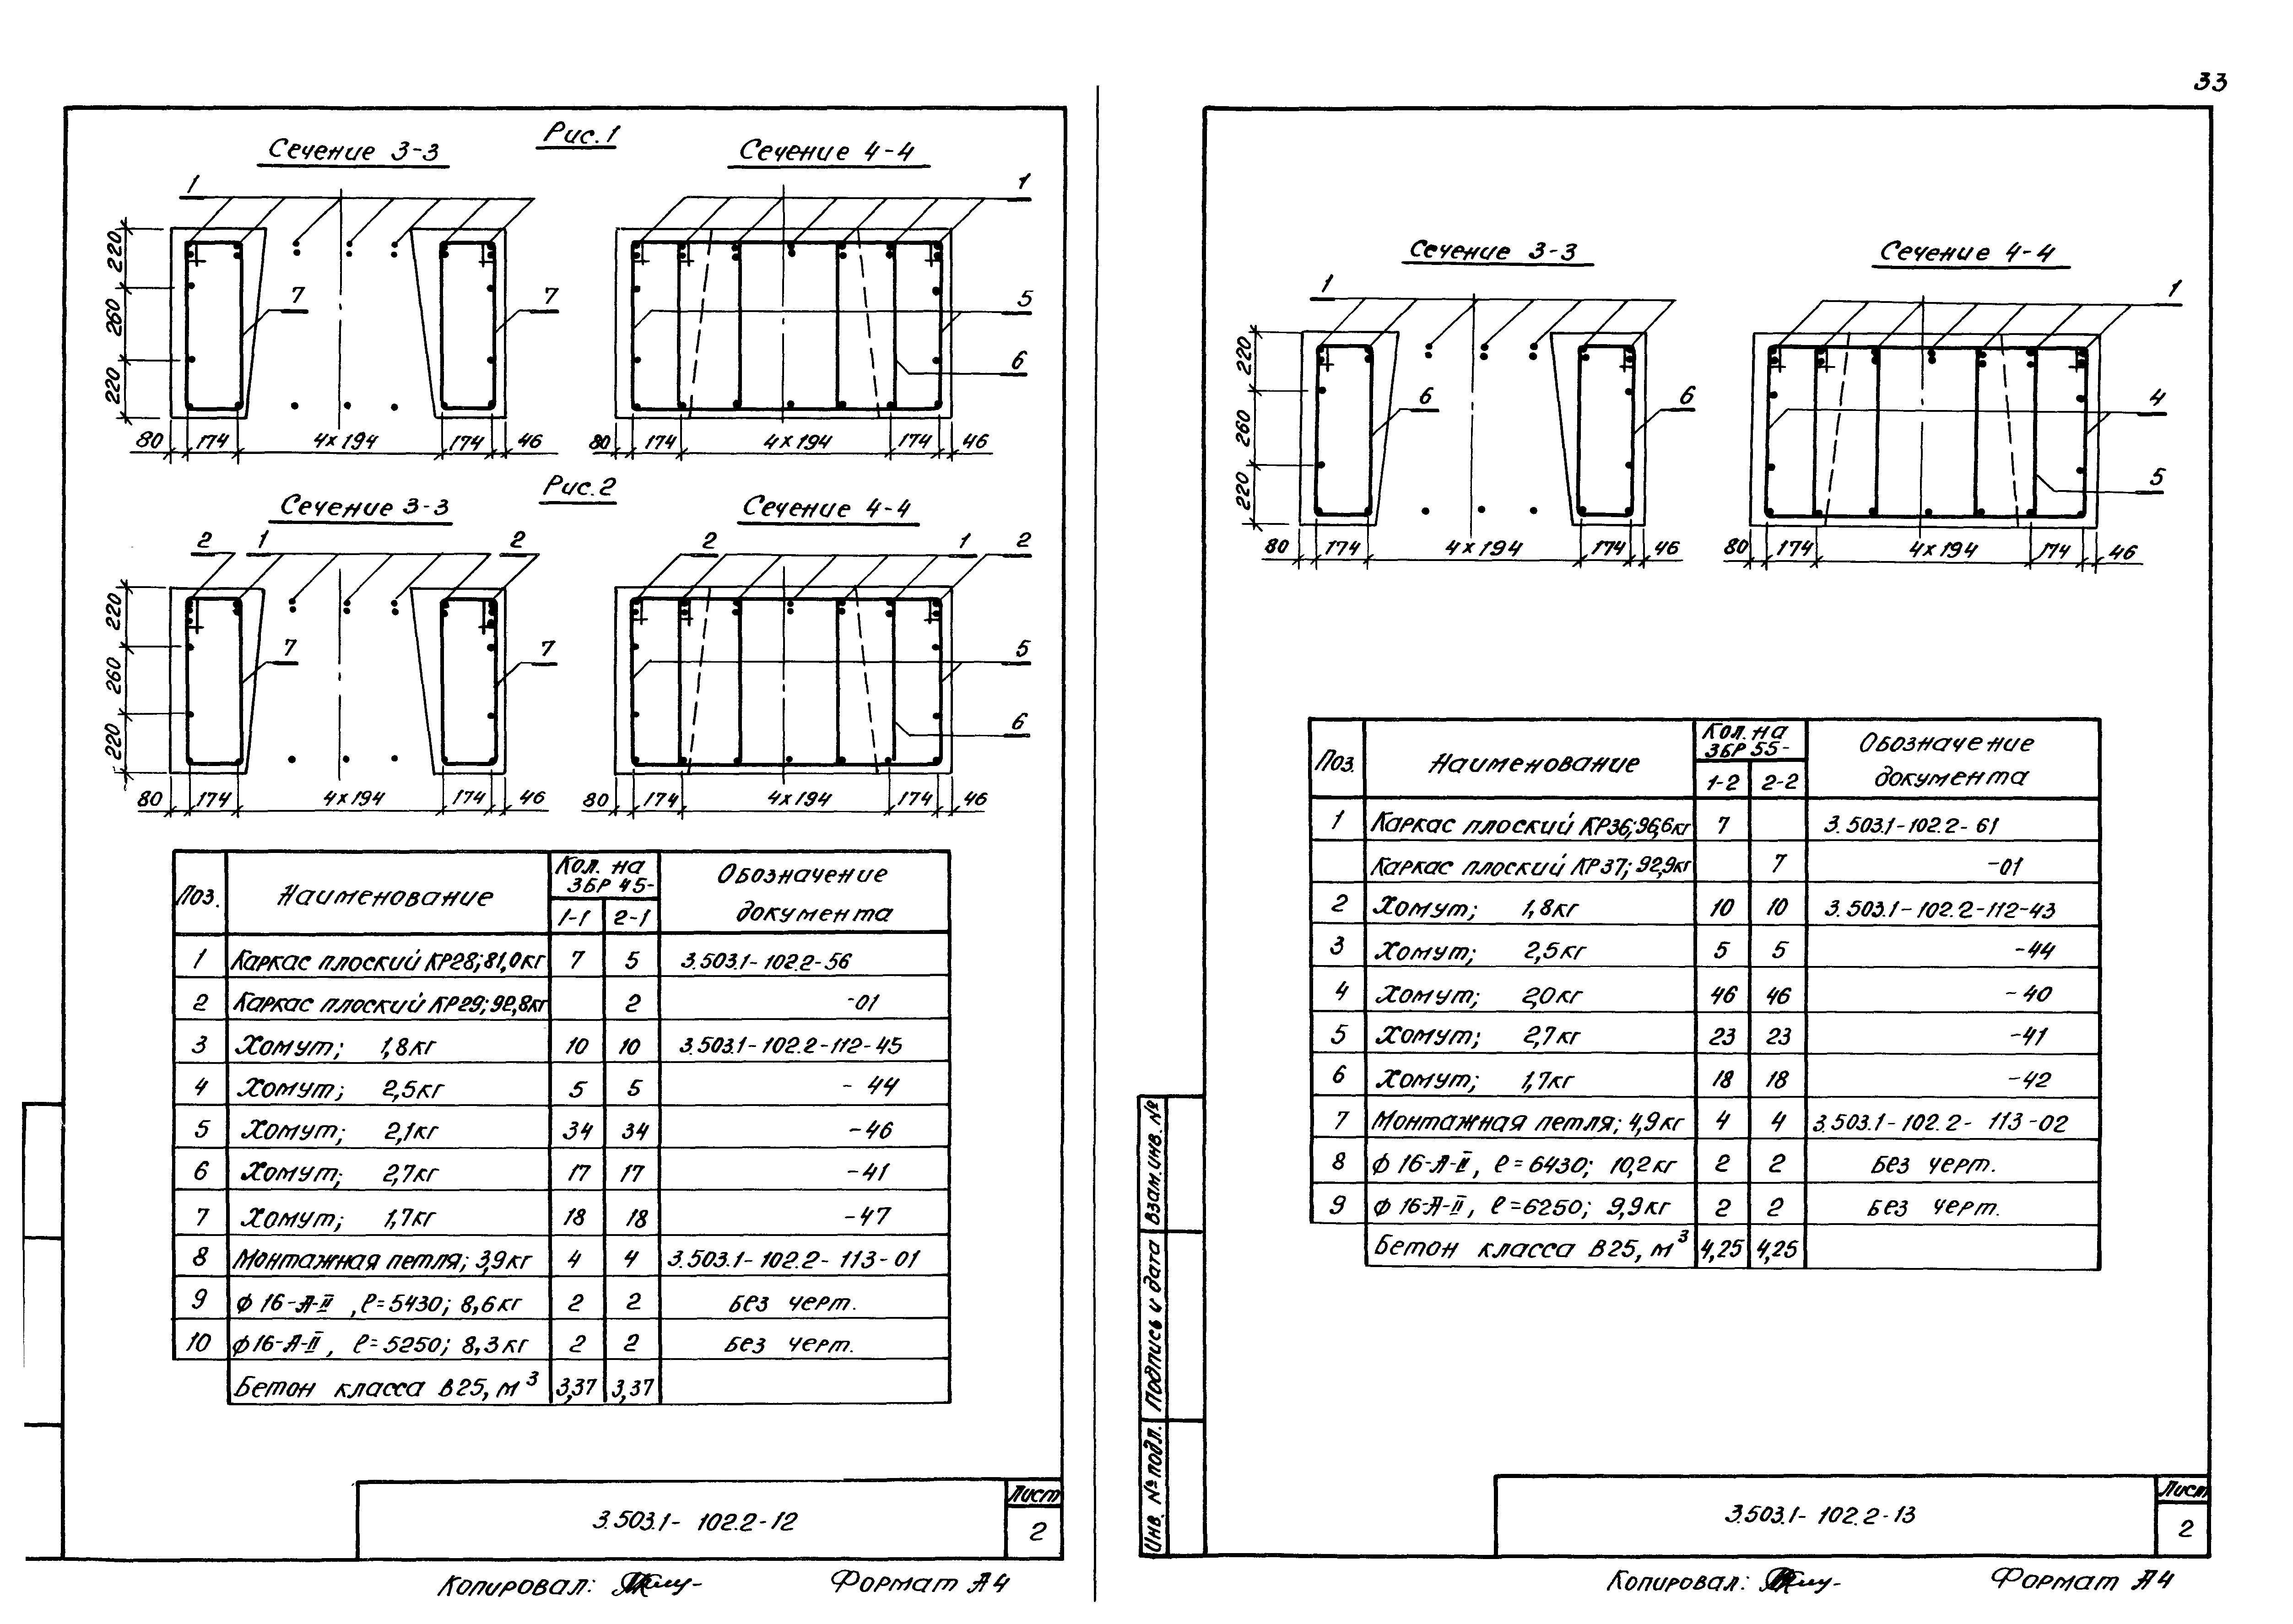 33
Рис. 1
Сечение 3-3
Сечение 4-4
1
1
220
260
220
7
7
5
6
80 174 4х194 174 46
80 174 4х194 174 46
Рис. 2
Сечение 3-3
Сечение 4-4
2 1 2
2 1 2
220
260
220
7
7
5
6
80 174 4х194 174 46
80 174 4х194 174 46
Поз. Наименование Кол. на 3БР 45- Обозначение документа
1-1 2-1
1 Каркас плоский КР28; 81,0кг 7 5 3.503.1-102.2-56
2 Каркас плоский КР29; 92,8кг 2 -01
3 Хомут; 1,8кг 10 10 3.503.1-102.2-112-45
4 Хомут; 2,5кг 5 5 -44
5 Хомут; 2,1кг 34 34 -46
6 Хомут; 2,7кг 17 17 -41
7 Хомут; 1,7кг 18 18 -47
8 Монтажная петля; 3,9кг 4 4 3.503.1-102.2-113-01
9 ф 16-А-II, ℓ=5430; 8,6кг 2 2 Без черт.
10 ф16-А-II, ℓ=5250; 8,3кг 2 2 Без черт.
Бетон класса В25, м³ 3,37 3,37
3.503.1-102.2-12
Лист
2
Копировал:
Формат А4
Сечение 3-3
Сечение 4-4
1
1
220
260
220
6
6
4
5
80 174 4х194 174 46
80 174 4х194 174 46
Поз. Наименование Кол. на 3БР 55- Обозначение документа
1-2 2-2
1 Каркас плоский КР36; 96,6кг 7 3.503.1-102.2-61
Каркас плоский КР37; 92,9кг 7 -01
2 Хомут; 1,8кг 10 10 3.503.1-102.2-112-43
3 Хомут; 2,5кг 5 5 -44
4 Хомут; 2,0кг 46 46 -40
5 Хомут; 2,7кг 23 23 -41
6 Хомут; 1,7кг 18 18 -42
7 Монтажная петля; 4,9кг 4 4 3.503.1-102.2-113-02
8 ф 16-А-II, ℓ=6430; 10,2кг 2 2 Без черт.
9 ф 16-А-II, ℓ=6250; 9,9кг 2 2 Без черт.
Бетон класса В25, м³ 4,25 4,25
Инв. № подл. Подпись и дата Взам. инв. №
3.503.1-102.2-13
Лист
2
Копировал:
Формат А4